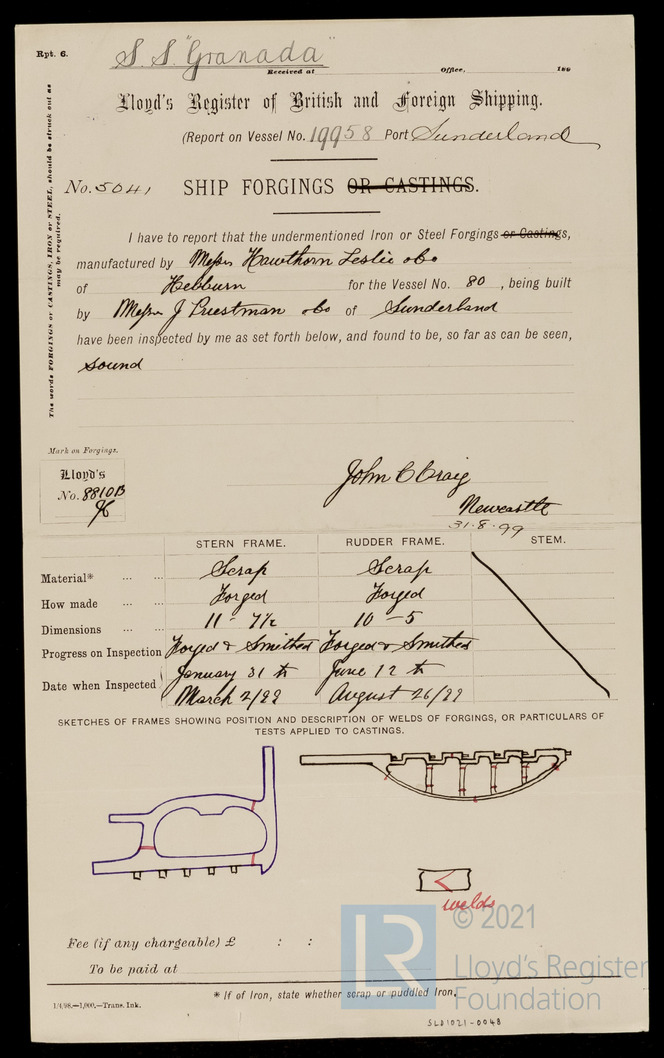 Rpt. 6.
S. S. "Granada"
Received at Office, 189
Lloyd's Register of British and Foreign Shipping.
(Report on Vessel No. 19958 Port Sunderland
No. 5041 SHIP FORGINGS OR CASTINGS.
The words FORGINGS or CASTINGS, IRON or STEEL, should be struck out as
may be required.
I have to report that the undermentioned Iron or Steel Forgings or Castings,
manufactured by Messrs Hawthorn Leslie & Co
of Hebburn for the Vessel No. 80 , being built
by Messrs J Priestman & Co of Sunderland
have been inspected by me as set forth below, and found to be, so far as can be seen,
sound
Mark on Forgings.
Lloyd's
No. 8810B
John C Craig
Newcastle
31·8·99
STERN FRAME. RUDDER FRAME. STEM.
Material* ... ... Scrap Scrap
How made ... ... Forged Forged
Dimensions ... ... 11 - 7½ 10 - 5
Progress on Inspection Forged & Smithed Forged & Smithed
Date when Inspected January 31 th June 12 th
March 2/99 August 26/99
SKETCHES OF FRAMES SHOWING POSITION AND DESCRIPTION OF WELDS OF FORGINGS, OR PARTICULARS OF
TESTS APPLIED TO CASTINGS.
welds
Fee (if any chargeable) £ : :
To be paid at
* If of Iron, state whether scrap or puddled Iron.
1/4/98.—1,000.—Trans. Ink.
LR
© 2021
Lloyd's Register
Foundation
SLD1021-0048